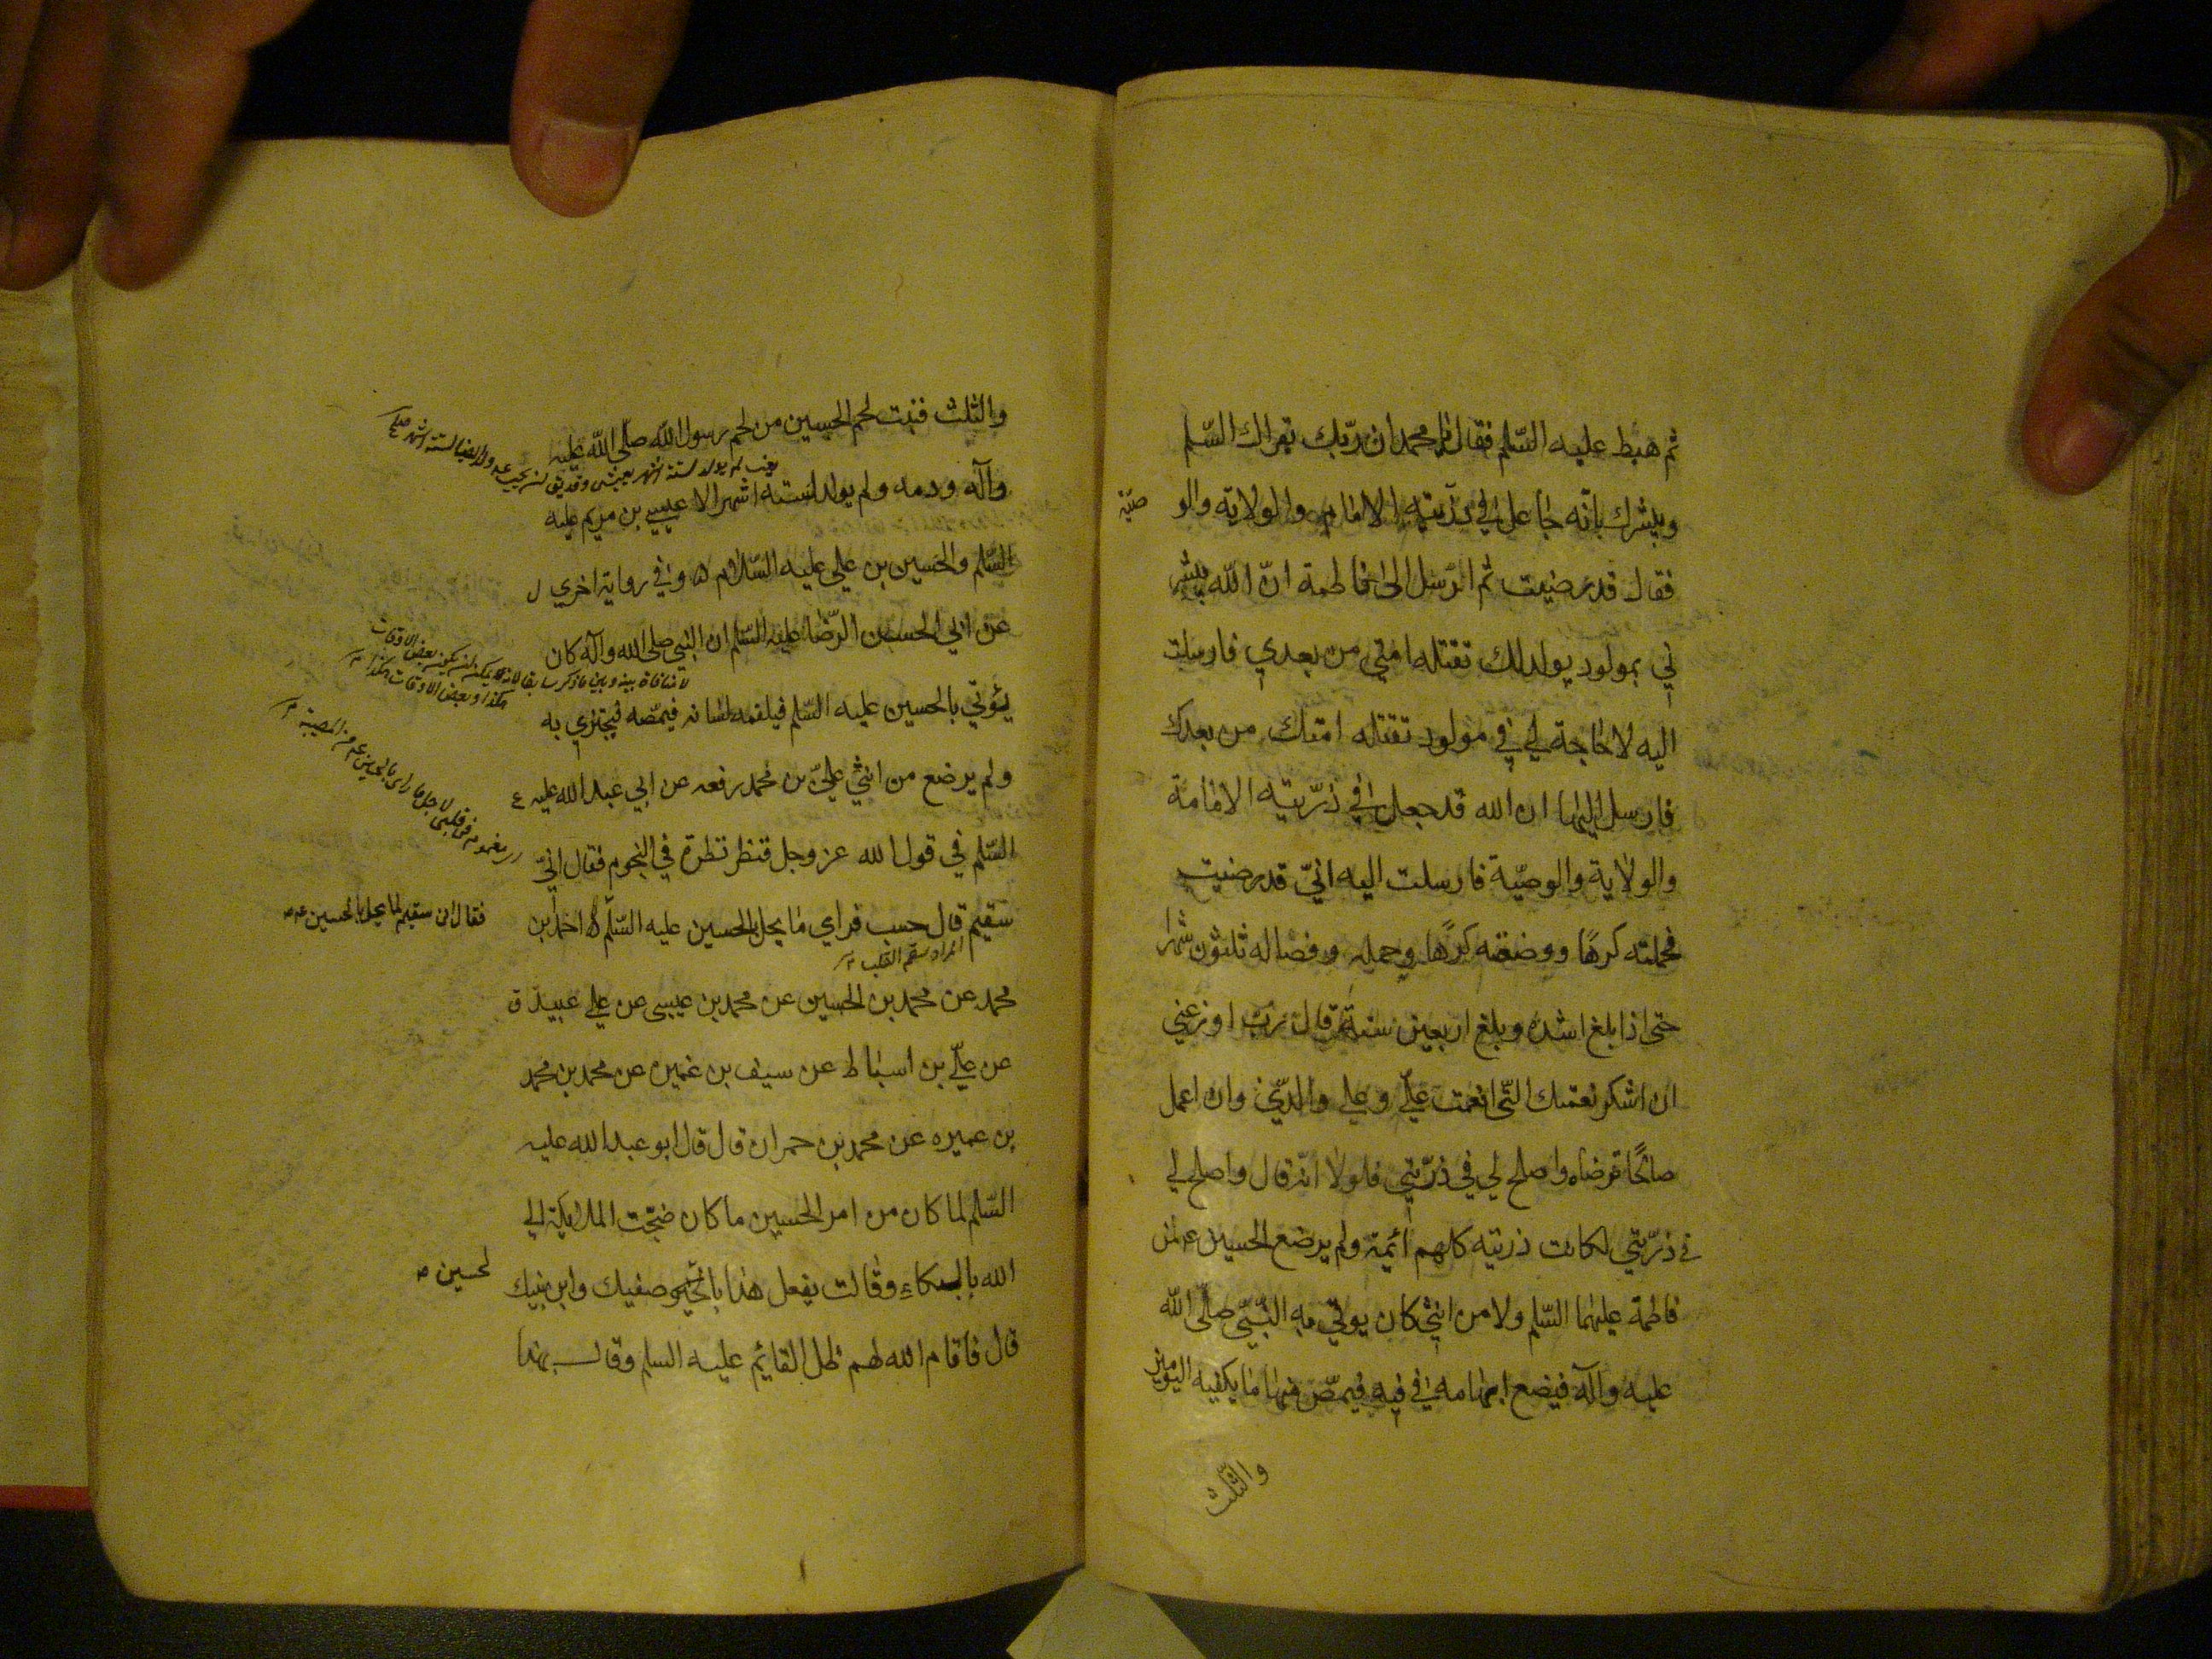 ثم هبط عليه السّلم فقال يا محمد ان ربّك يقرأك السّلم
ويبشرك بانّه جاعل في ذرّيته الامامة والولاية والو
صيّة
فقال قد رضيت ثم ارسل الى فاطمة انّ الله يبشر
ني بمولود يولد لك تقتله امتي من بعدي فارسلت
اليه لا حاجة لي في مولود تقتله امتك من بعدك
فارسل اليها ان الله قد جعل في ذرّيته الامامة
والولاية والوصيّة فارسلت اليه انيّ قد رضيت
فحملته كرهًا ووضعته كرهًا وحمله وفصاله ثلثون شهرا
حتى اذا بلغ اشده وبلغ اربعين سنة قال رب اوزعني
ان اشكر نعمتك التّي انعمت عليّ وعلى والديّ وان اعمل
صالحًا ترضاه واصلح لي في ذرّيتي فلولا انّه قال واصلح لي
في ذرّيتي لكانت ذريته كلهم أئمة ولم يرضع الحسين ع من
فاطمة عليهما السّلم ولا من انثى كان يوتى به النّبيّ صلّى الله
عليه وآله فيضع ابهامه في فيه فيمصّ منها ما يكفيه اليومين
والثّلث
والثلث فنبت لحم الحسين من لحم رسول الله صلّى الله عليه
وآله ودمه ولم يولد لستة اشهر الا عيسى بن مريم عليه
السّلم والحسين بن علي عليه السّلام وفي رواية اخري
عن ابي الحسن الرّضا عليه السّلم ان النبي صلى الله وآله كان
يؤتي بالحسين عليه السّلم فيلقمه لسانه فيمصّه فيجتزي به
ولم يرضع من انثي عليّ بن محمد رفعه عن ابي عبد الله عليه
السّلم في قول الله عز وجل فنظر نظرة في النجوم فقال انيّ
سقيم قال حسب فراي ما يحل بالحسين عليه السّلم احمد بن
فقال اني سقيم لما يحل بالحسين ع
المراد سقم القلب
محمد عن محمد بن الحسين عن محمد بن عيسى عن علي عبيد
عن عليّ بن اسباط عن سيف بن عميره عن محمد بن محمد
بن عميره عن محمد بن حمران قال قال ابو عبد الله عليه
السّلم لما كان من امر الحسين ما كان ضجّت الملايكة الي
الله بالبكاء وقالت يفعل هذا با صفيك وابن نبيك
لحسين
قال فاقام الله لهم ظل القايم عليه السلم وقال بهذا